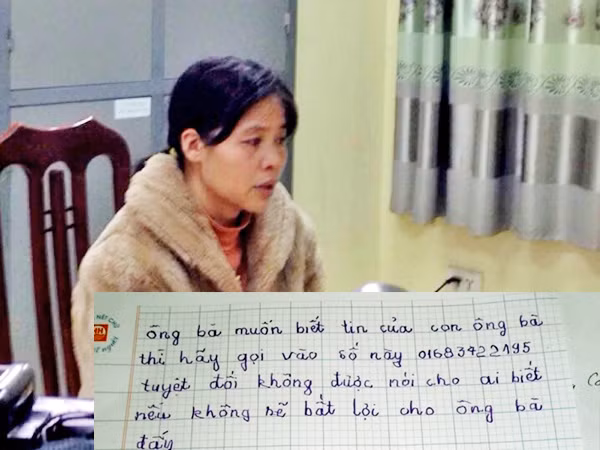 ông bà muốn biết tin của con ông bà
thì hãy gọi vào số này 01683422195
tuyệt đối không được nói cho ai biết
nếu không sẽ bất lợi cho ông bà
đấy